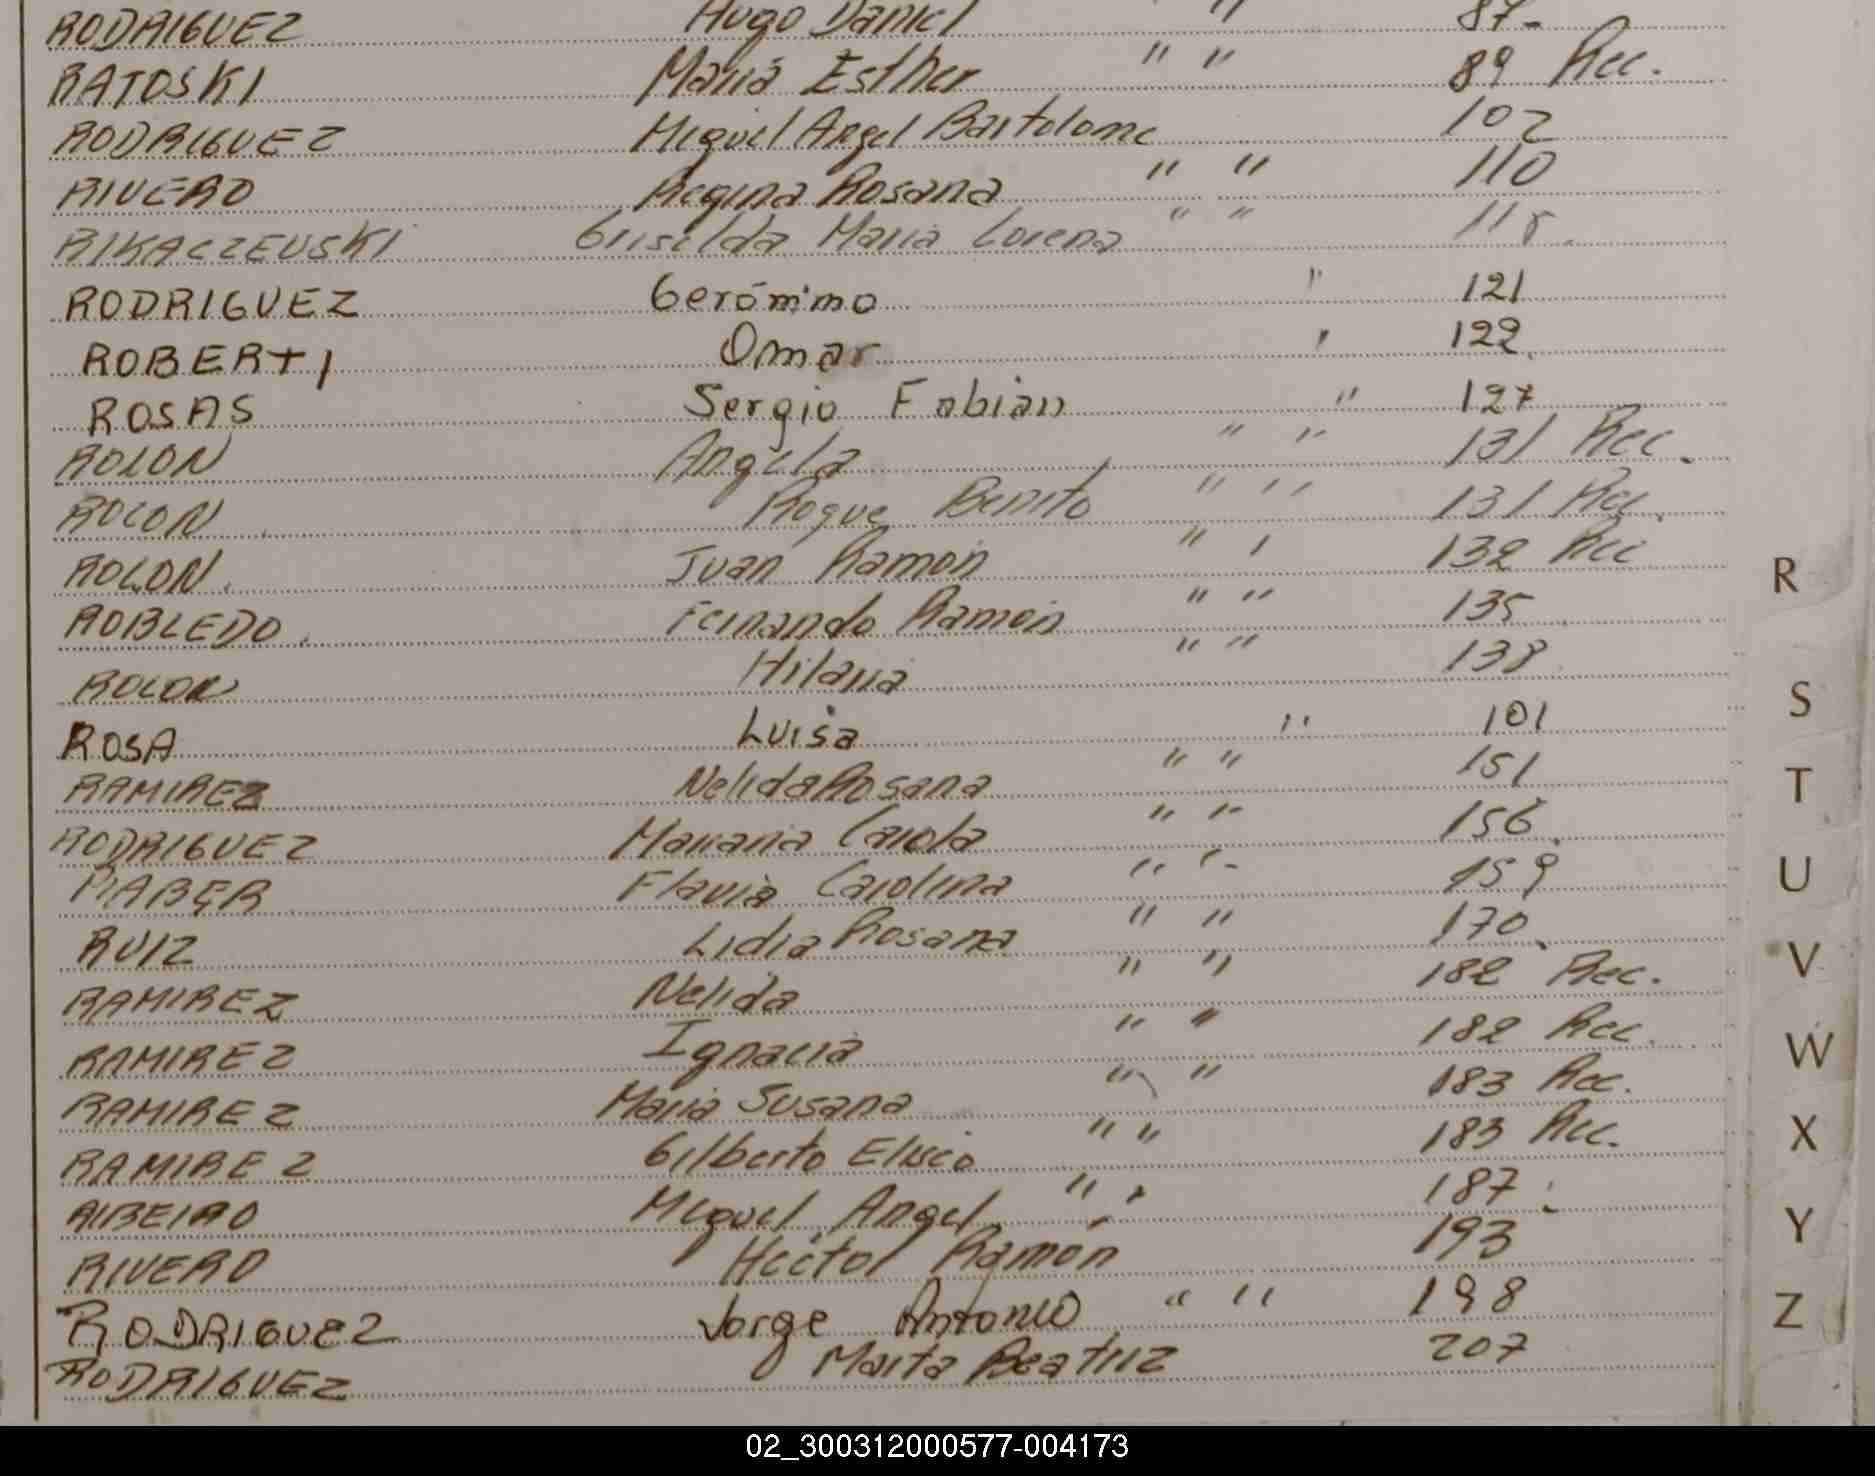 RODRIGUEZ Hugo Daniel " 87-
RATOSKI Maria Esther " " 89 Rec.
RODRIGUEZ Miguel Angel Bartolome 102
RIVERO Regina Rosana " " 110
RIKACZEUSKI Griselda Maria Lorena " " 118.
RODRIGUEZ Gerónimo " 121
ROBERTI Omar " 122
ROSAS Sergio Fabian " 127
ROLON Angela " " 131 Rec.
ROLON Roque Benito " " 131 Rec.
ROLON. Juan Ramon " " 132 Rec
ROBLEDO. Fernando Ramón " " 135
ROLON Hilaria " " 138
ROSA Luisa " 101
RAMIREZ Nelida Rosana " " 151
RODRIGUEZ Mariana Carola " " 156
RABER Flavia Carolina " " 159
RUIZ Lidia Rosana " " 170
RAMIREZ Nelida " " 182 Rec.
RAMIREZ Ignacia " " 182 Rec.
RAMIREZ Maria Susana " " 183 Rec.
RAMIREZ Gilberto Eliseo " " 183 Rec.
RIBEIRO Miguel Angel " " 187
RIVERO Hector Ramón 193
RODRIGUEZ Jorge Antonio " " 198
RODRIGUEZ Marta Beatriz 207
R
S
T
U
V
W
X
Y
Z
02_300312000577-004173